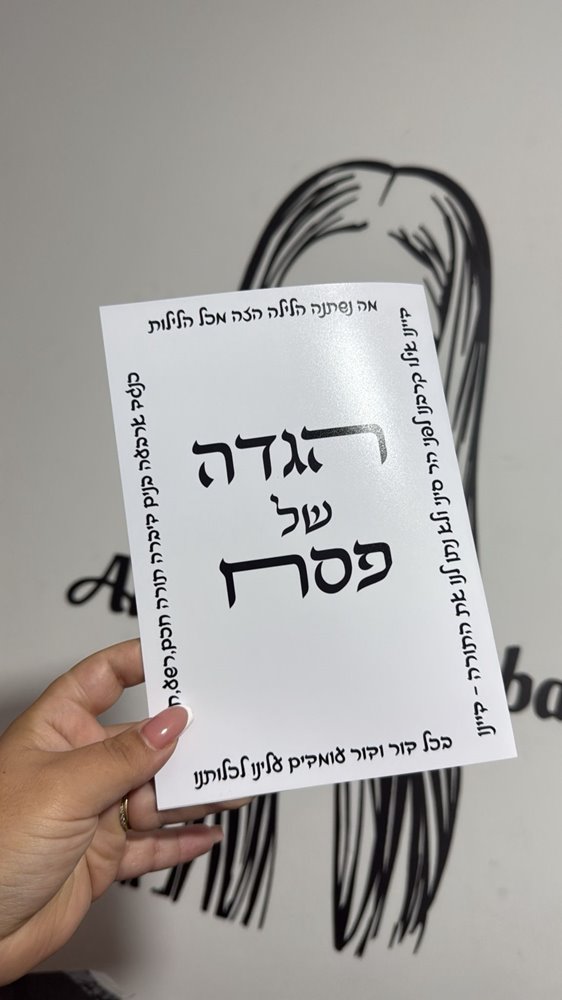 מה נשתנה הלילה הזה מכל הלילות
הגדה
של
פסח
דיינו אילו קרבנו לפני הר סיני ולא נתן לנו את התורה - דיינו
כנגד ארבעה בנים דיברה תורה חכם, רשע,
בכל דור ודור עומדים עלינו לכלותנו